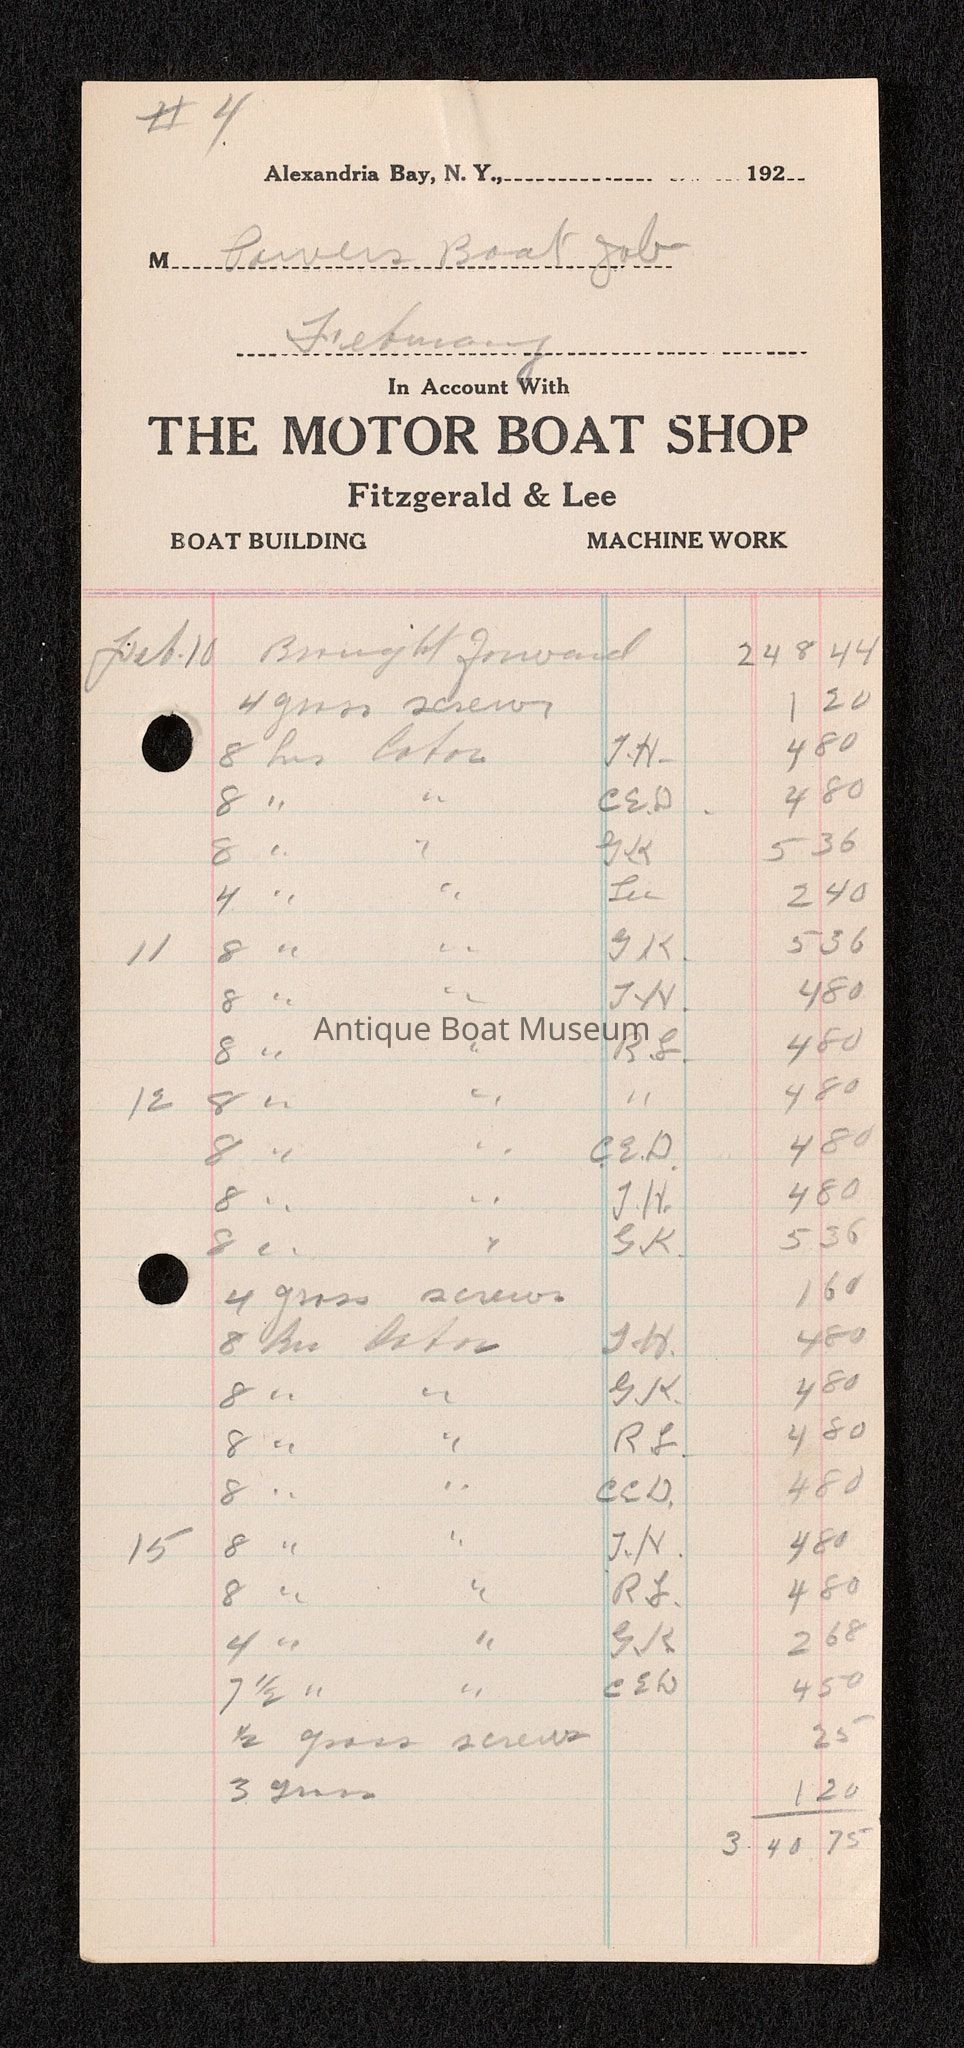 # 4
Alexandria Bay, N. Y., 192
M Powers Boat Job
Februrary
In Account With
THE MOTOR BOAT SHOP
Fitzgerald & Lee
BOAT BUILDING MACHINE WORK
Feb. 10 Brought Forward 248 44
4 gross screws 1 20
8 hrs labor J.H. 4 80
8 " " C.E.D. 4 80
8 " " G.K 5 36
4 " " Lee 2 40
11 8 " " G.K. 5 36
8 " " J.H. 4 80
Antique Boat Museum
8 " " R.L. 4 80
12 8 " " " 4 80
8 " " C.E.D. 4 80
8 " " J.H. 4 80
8 " " G.K. 5 36
4 gross screws 1 60
8 hrs labor J.H. 4 80
8 " " G.K. 4 80
8 " " R L. 4 80
8 " " C E D. 4 80
15 8 " " J.H. 4 80
8 " " R L. 4 80
4 " " G K 2 68
7 1/2 " " C E D 4 50
1/2 gross screws 25
3 gross 1 20
3 40 75